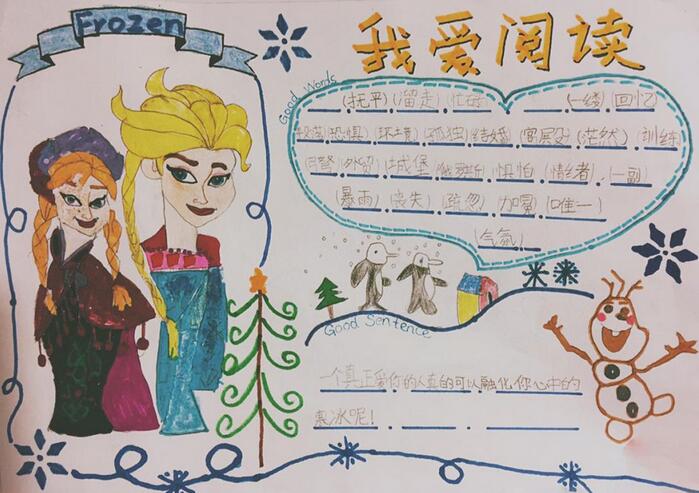 Frozen
我爱阅读
Good Words
(抚平)(溜走)(忙碌) (一缕)(回忆)
(恐惧)(环境)(孤独)(结婚)(茫然)(训练)
(外贸)(城堡) (惧怕)(一副)
(暴雨)(丧失)(疏忽)(加冕)(唯一)
(气氛)
Good Sentence
一个真正爱你的人真的可以融化你心中的
寒冰呢!